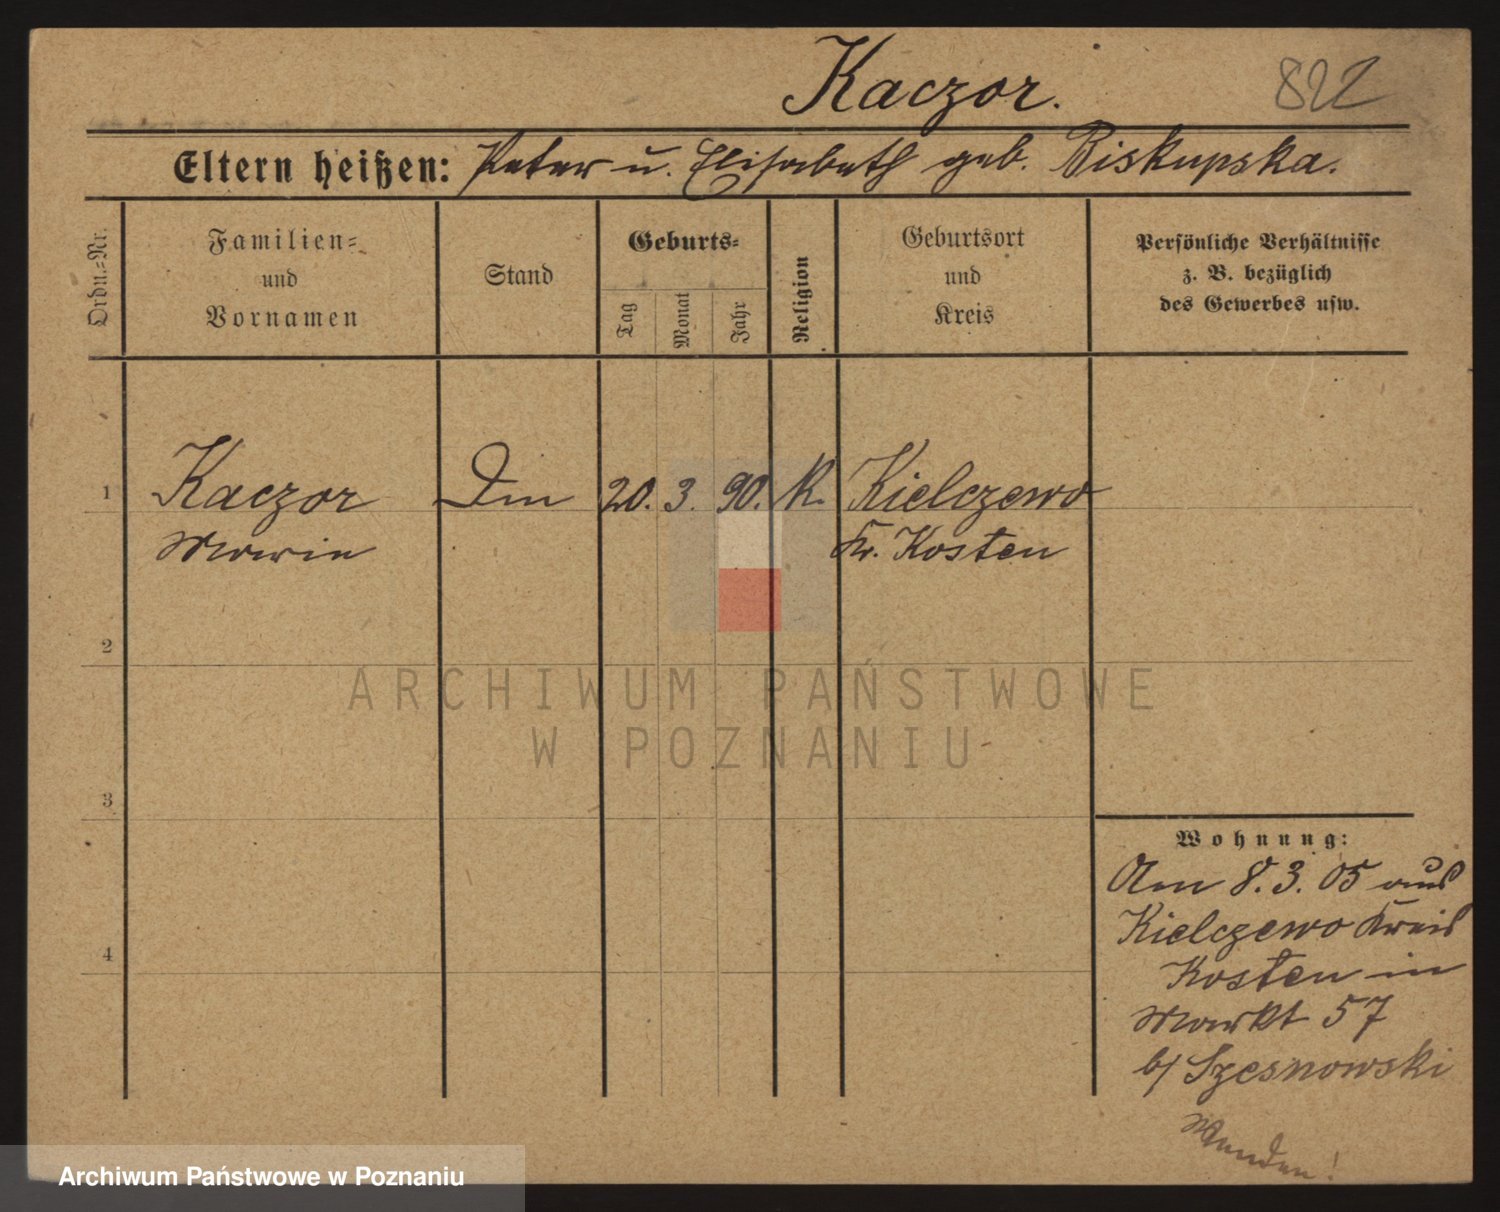 Kaczor.
822
Eltern heißen: Peter u. Elisabeth geb. Biskupska.
Ordn.-Nr.
Familien-
und
Vornamen
Stand
Geburts-
Tag
Monat
Jahr
Religion
Geburtsort
und
Kreis
Persönliche Verhältnisse
z. B. bezüglich
des Gewerbes usw.
1 Kaczor 20. 3. 90. K. Kielczewo
Marie Kr. Kosten
2
ARCHIWUM PAŃSTWOWE
W POZNANIU
3
Wohnung:
Am 8. 3. 05 aus
Kielczewo Kreis
4
Kosten in
Markt 57
b/ Szesnowski
Wenden!
Archiwum Państwowe w Poznaniu